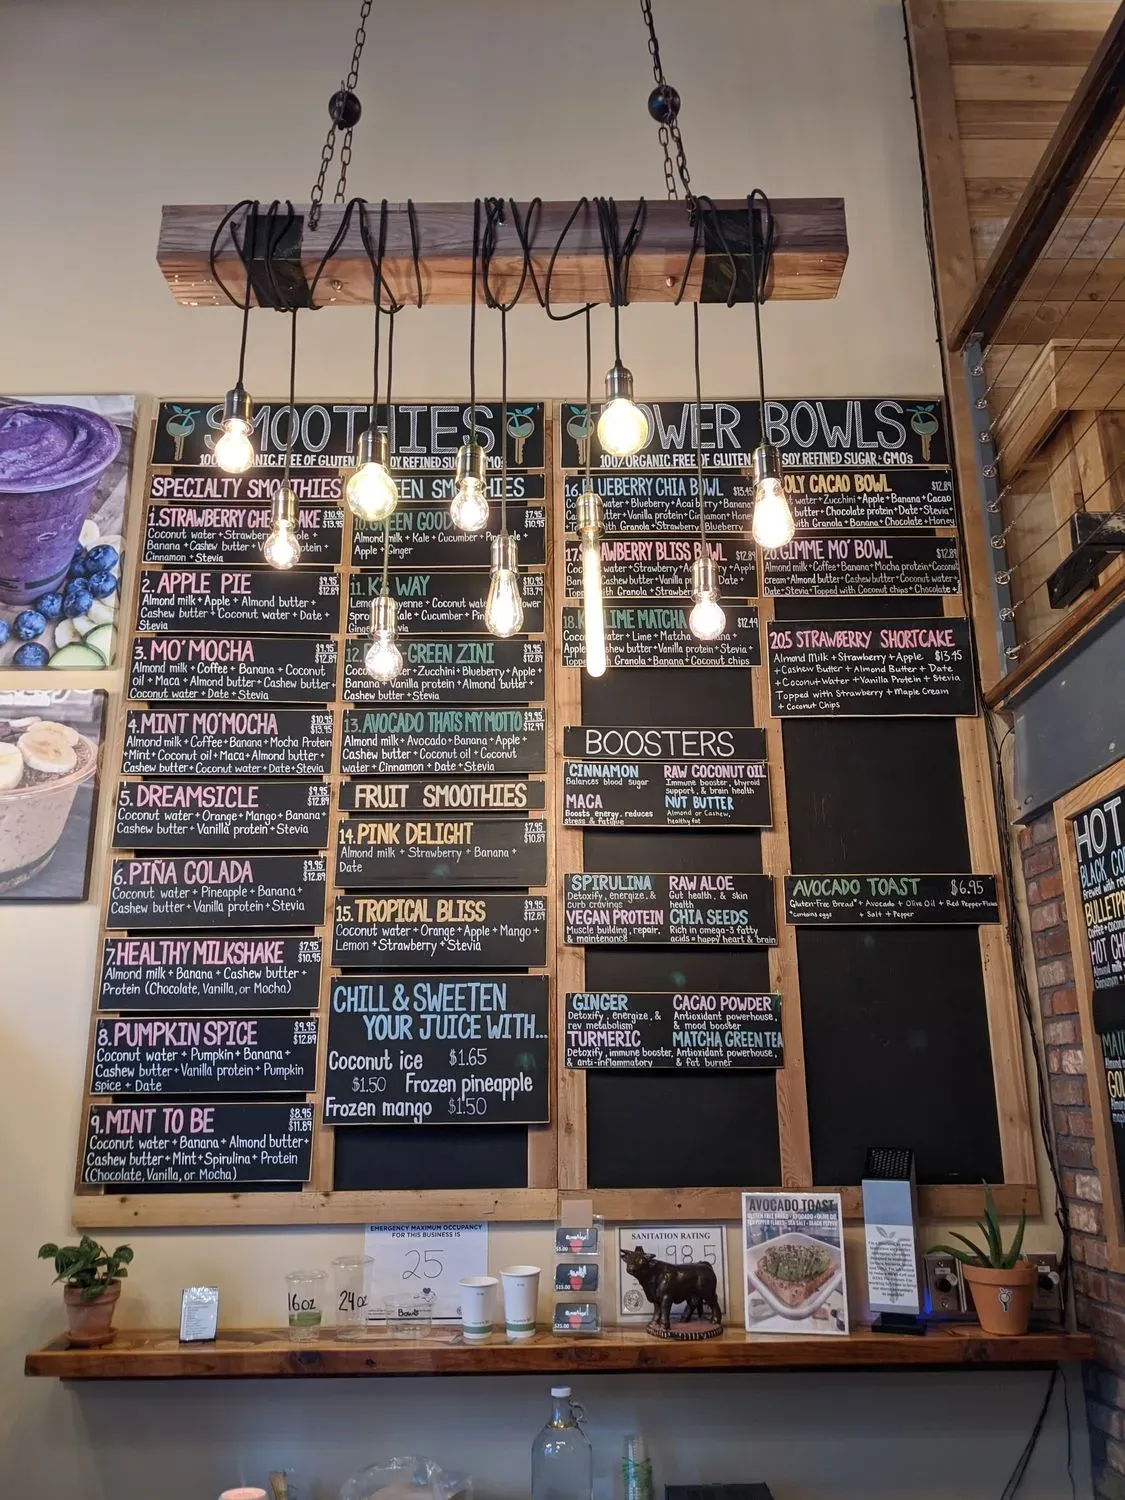 SMOOTHIES
100% ORGANIC. FREE OF GLUTEN SOY. REFINED SUGAR GMO's
SPECIALTY SMOOTHIES
1. STRAWBERRY CHE CAKE $10.95 $13.95
Coconut water + Strawberry
Banana + Cashew butter + Protein +
Cinnamon + Stevia
2. APPLE PIE $9.95 $12.89
Almond milk + Apple + Almond butter +
Cashew butter + Coconut water + Date +
Stevia
3. MO' MOCHA $9.95 $12.89
Almond milk + Coffee + Banana + Coconut
oil + Maca + Almond butter + Cashew butter +
Coconut water + Date + Stevia
4. MINT MO'MOCHA $10.95 $13.95
Almond milk + Coffee + Banana + Mocha Protein
+ Mint + Coconut oil + Maca + Almond butter +
Cashew butter + Coconut water + Date + Stevia
5. DREAMSICLE $9.95 $12.89
Coconut water + Orange + Mango + Banana +
Cashew butter + Vanilla protein + Stevia
6. PIÑA COLADA $9.95 $12.89
Coconut water + Pineapple + Banana +
Cashew butter + Vanilla protein + Stevia
7. HEALTHY MILKSHAKE $7.95 $10.95
Almond milk + Banana + Cashew butter +
Protein (Chocolate, Vanilla, or Mocha)
8. PUMPKIN SPICE $9.95 $12.89
Coconut water + Pumpkin + Banana +
Cashew butter + Vanilla protein + Pumpkin
spice + Date
9. MINT TO BE $8.95 $11.89
Coconut water + Banana + Almond butter +
Cashew butter + Mint + Spirulina + Protein
(Chocolate, Vanilla, or Mocha)
EEN SMOOTHIES
10. GREEN GOOD $7.95 $10.95
Almond milk + Kale + Cucumber + Pineapple +
Apple + Ginger
11. K WAY $10.95 $13.79
Lemon Cayenne + Coconut water
Kale + Cucumber +
Ginger Stevia
12. GREEN ZINI $9.95 $12.89
Zucchini + Blueberry + Apple +
Banana + Vanilla protein + Almond butter +
Cashew butter + Stevia
13. AVOCADO THATS MY MOTTO $9.95 $12.99
Almond milk + Avocado + Banana + Apple +
Cashew butter + Coconut oil + Coconut
water + Cinnamon + Date + Stevia
FRUIT SMOOTHIES
14. PINK DELIGHT $7.95 $10.89
Almond milk + Strawberry + Banana +
Date
15. TROPICAL BLISS $9.95 $12.89
Coconut water + Orange + Apple + Mango +
Lemon + Strawberry + Stevia
CHILL & SWEETEN
YOUR JUICE WITH...
Coconut ice $1.65
$1.50 Frozen pineapple
Frozen mango $1.50
POWER BOWLS
100% ORGANIC. FREE OF GLUTEN SOY. REFINED SUGAR GMO's
16. BLUEBERRY CHIA BOWL $13.45
water + Blueberry + Acai berry + Banana
+ Vanilla protein + Cinnamon + Honey
with Granola + Strawberry + Blueberry
17. STRAWBERRY BLISS BOWL $12.89
water + Strawberry + Apple
Cashew butter + Vanilla Date +
with Granola + Strawberry + Banana
18. LIME MATCHA $12.49
water + Lime + Matcha Banana +
butter + Vanilla protein + Stevia +
Granola + Banana + Coconut chips
HOLY CACAO BOWL $12.89
water + Zucchini + Apple + Banana + Cacao
butter + Chocolate protein + Date + Stevia
with Granola + Banana + Chocolate + Honey
20. GIMME MO' BOWL $12.89
Almond milk + Coffee + Banana + Mocha protein + Coconut
cream + Almond butter + Cashew butter + Coconut water +
Date + Stevia + Topped with Coconut chips + Chocolate +
20.5 STRAWBERRY SHORTCAKE
Almond Milk + Strawberry + Apple $13.45
+ Cashew Butter + Almond Butter + Date
+ Coconut Water + Vanilla Protein + Stevia
Topped with Strawberry + Maple Cream
+ Coconut Chips
BOOSTERS
CINNAMON
Balances blood sugar
RAW COCONUT OIL
Immune booster, thyroid
support, & brain health
MACA
Boosts energy, reduces
stress & fatigue
NUT BUTTER
Almond or Cashew,
healthy fat
SPIRULINA
Detoxify, energize, &
curb cravings
RAW ALOE
Gut health, & skin
health
VEGAN PROTEIN
Muscle building, repair,
& maintenance
CHIA SEEDS
Rich in omega-3 fatty
acids = happy heart & brain
GINGER
Detoxify, energize, &
rev metabolism
CACAO POWDER
Antioxidant powerhouse,
& mood booster
TURMERIC
Detoxify, immune booster,
& anti-inflammatory
MATCHA GREEN TEA
Antioxidant powerhouse,
& fat burner
AVOCADO TOAST $6.95
Gluten-Free Bread* + Avocado + Olive Oil + Red Pepper Flakes
*contains eggs + Salt + Pepper
HOT
BLACK CO
Brewed with
BULLETPR
Coffee + coconu
HOT CHO
Almond milk
Cinnamon
GOL
EMERGENCY MAXIMUM OCCUPANCY
FOR THIS BUSINESS IS
25
16 oz
24 oz
Bowls
$5.00
$15.00
$25.00
SANITATION RATING
98.5
AVOCADO TOAST
GLUTEN FREE BREAD - AVOCADO - OLIVE OIL
RED PEPPER FLAKES - SEA SALT - BLACK PEPPER